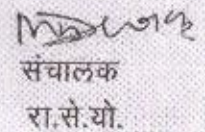 संचालक
रा.से.यो.